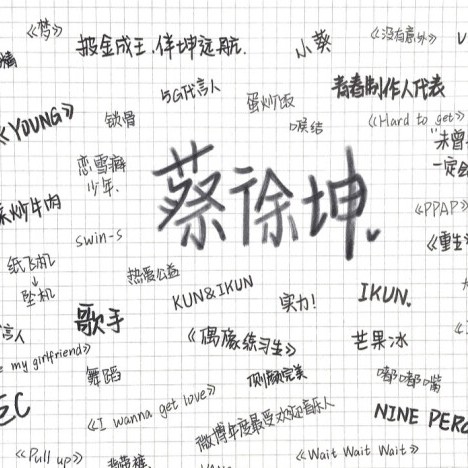 《梦》
披金成王,伴坤远航.
小葵
《没有意外》
5G代言人
蛋炒饭
青春制作人代表
《YOUNG》
锁骨
喉结
《Hard to get》
"未曾
一定会
恋雪癖
少年.
蔡徐坤
炒牛肉
swin-s
《PPAP》
《重生
纸飞机
↓
坠机
热爱公益
KUN&IKUN
实力!
IKUN.
歌手
言人
《偶像练习生》
芒果冰
my girlfriend》
舞蹈
侧颜完美
嘟嘟嘴
《I wanna get love》
微博年度最受欢迎音乐人
NINE PERC
《Pull up》
背带裤.
《Wait Wait Wait》